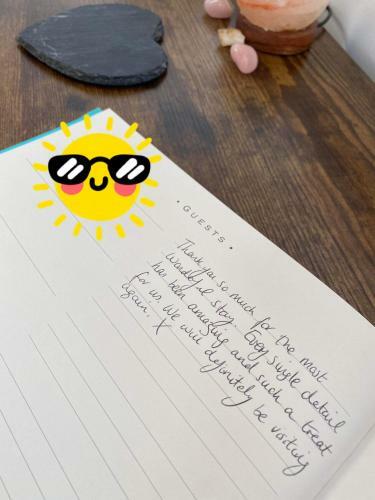 • GUESTS •
Thank you so much for the most
wonderful stay. Every single detail
has been amazing and such a treat
for us. We will definitely be visiting
again. X